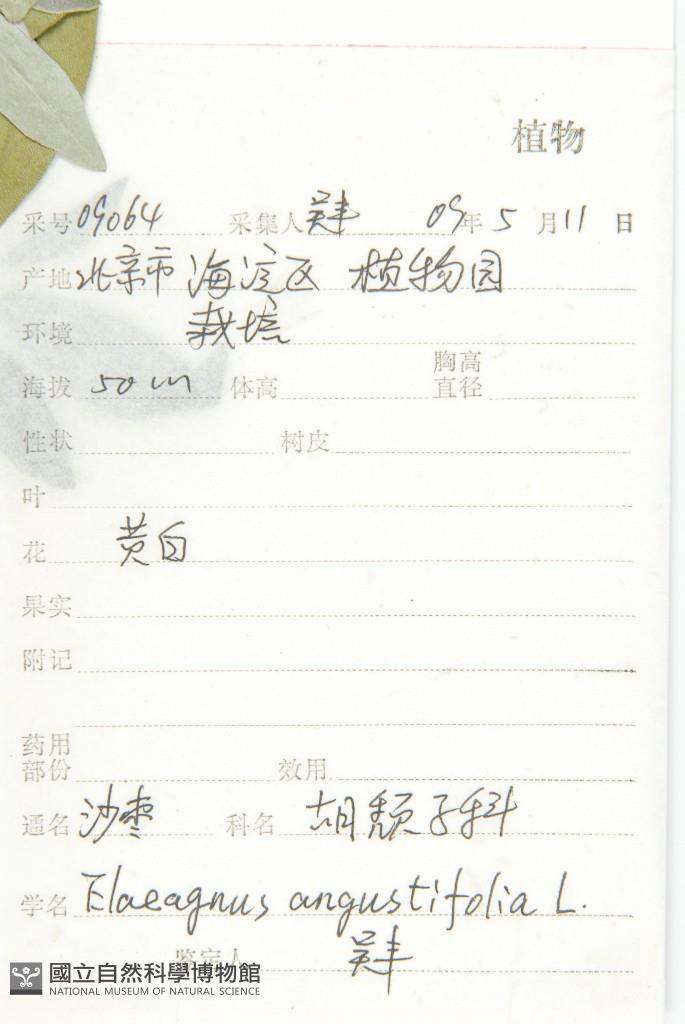 植物
采号 09064 采集人 吴丰 09年 5 月 11 日
产地 北京市 海淀区 植物园
环境 栽培
海拔 50 m 体高 胸高直径
性状 树皮
叶
花 黄白
果实
附记
药用部份 效用
通名 沙枣 科名 胡颓子科
学名 Elaeagnus angustifolia L.
鉴定人 吴丰
國立自然科學博物館
NATIONAL MUSEUM OF NATURAL SCIENCE